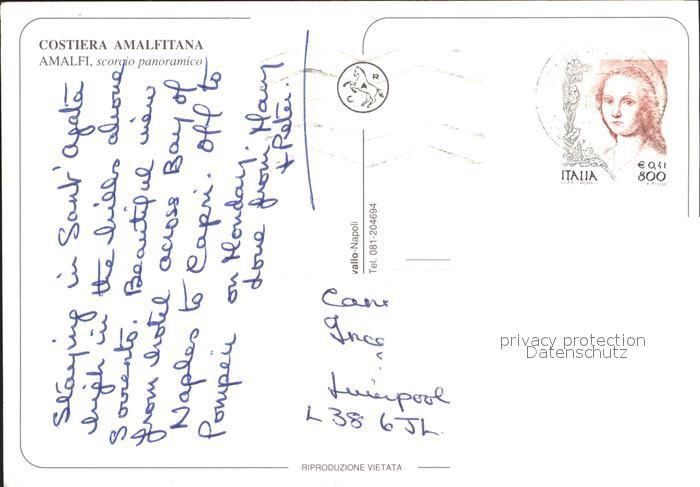 COSTIERA AMALFITANA
AMALFI, scorcio panoramico
Staying in Sant' Agata
high in the hills above
Sorrento. Beautiful view
from hotel across Bay of
Naples to Capri. Off to
Pompeii on Monday.
Love from, Mary
+ Peter.
CAR
vallo-Napoli
Tel. 081-204694
ITALIA
€ 0,41
800
Liverpool
L38 6JL.
privacy protection
Datenschutz
RIPRODUZIONE VIETATA